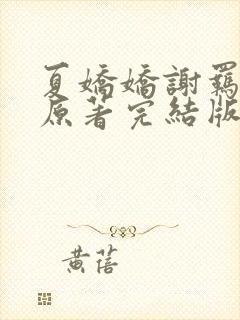 夏嬌嬌謝羈
原著完結版
黃蓓